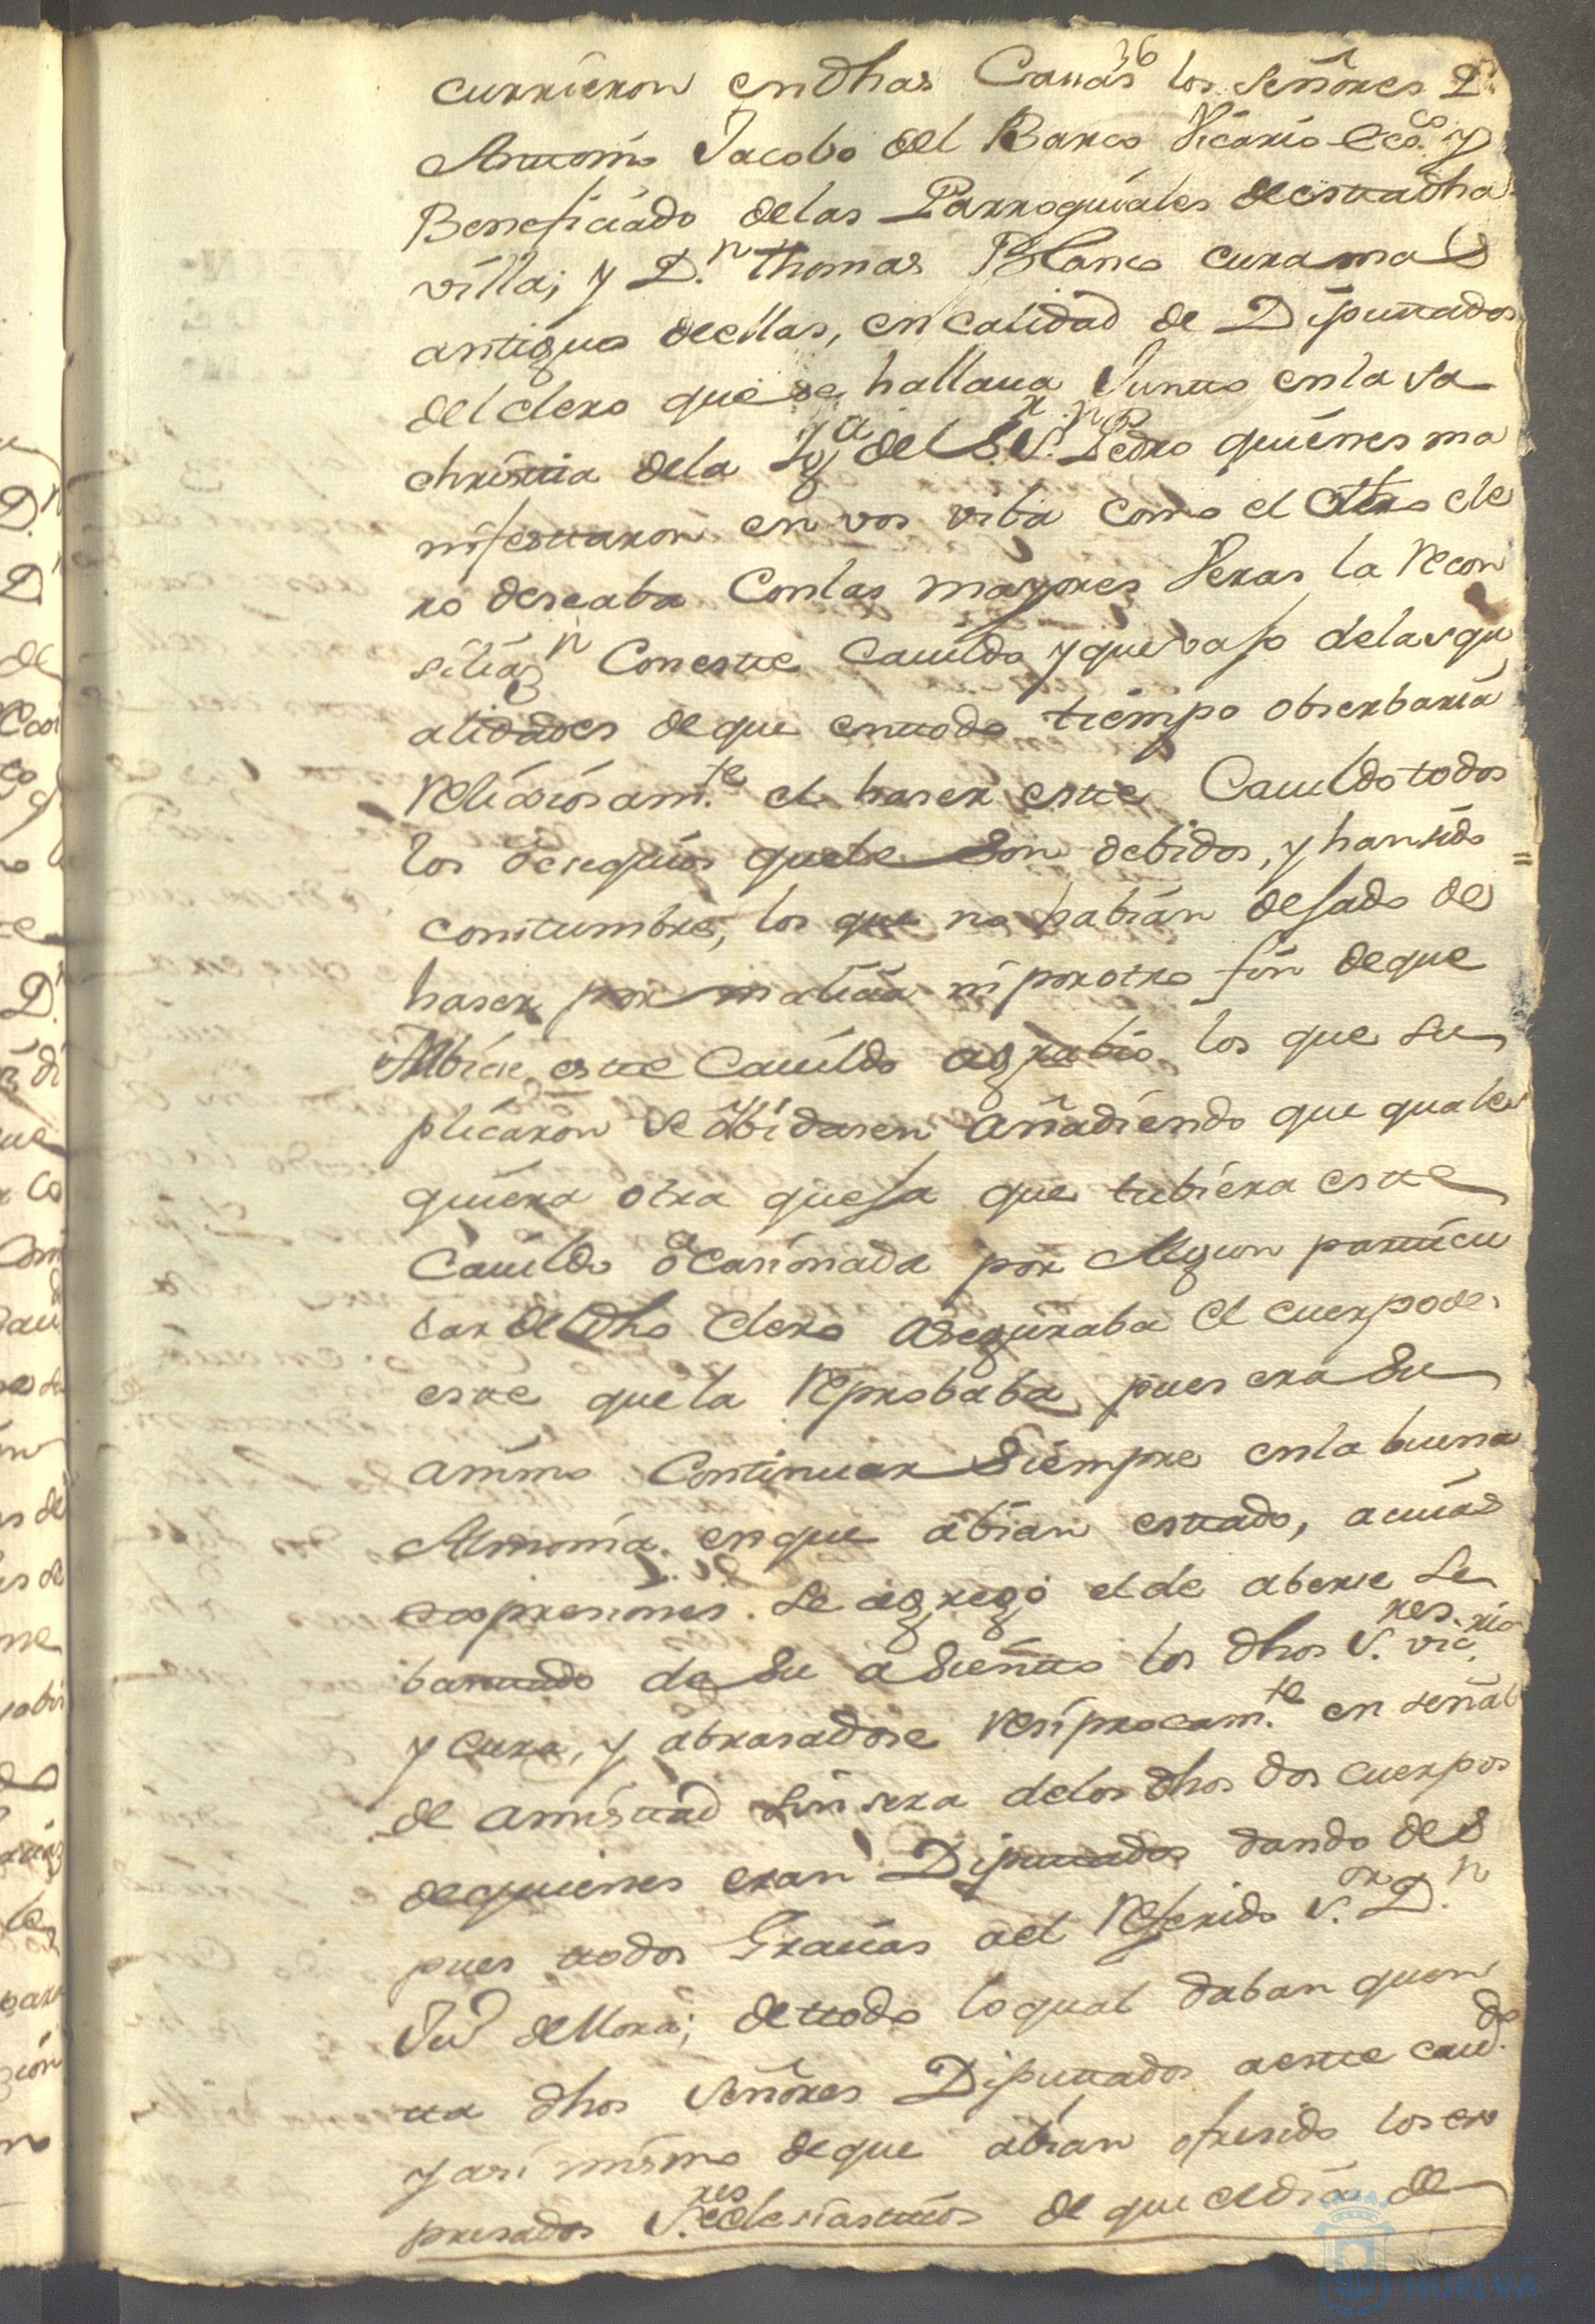 36
currieron en dhas Casas los Señores Dn.
Antonio Jacobo del Barco Vicario Ecco. y
Beneficiado de las Parroquiales de esta dha
villa; y D.n Thomas Blanco cura mas
antiguo de ellas, en calidad de Diputados
del clero que se hallaua Junto en la sa
christia de la Yga. del S.r S.n Pedro quienes ma
nifestaron en vos viba como el Clero
ro deseaba Con las mayores Veras la Recon
siliaz.n Con este Cauildo y que vajo de las qu
alidades de que en todo tiempo obserbaria
Religiosam.te el haser a este Cauildo todos
los obsequios que le son debidos, y han sido
constumbre, los que no habian dejado de
haser por malicia ni por otro fin de que
este Cauildo agrabio, los que su
plicaron se olbidasen Añadiendo que quales
quiera otra queja que tubiera este
Cauildo ocasionada por Algun particu
lar de dho clero Aseguraba el cuerpo de
este que la Reprobaba pues era su
animo Continuar Siempre en la buena
Armonia en que abian estado, a cuias
espresiones. Se agregó el de aberse le
bantado de su asiento los dhos S.res Vic.rio
y cura, y abrasadose Resiprocam.te en señal
de amistad sinsera de los dhos dos cuerpos
de quienes eran Diputados dando des
pues todos Gracias al Referido S.or D.n
Ju.o de Mora; de todo lo qual daban quen
ta dhos Señores Diputados a este cauil.do
y asi mismo de que abian ofresido los ex
presados S.res eclesiasticos de que el dia de
HUELVA